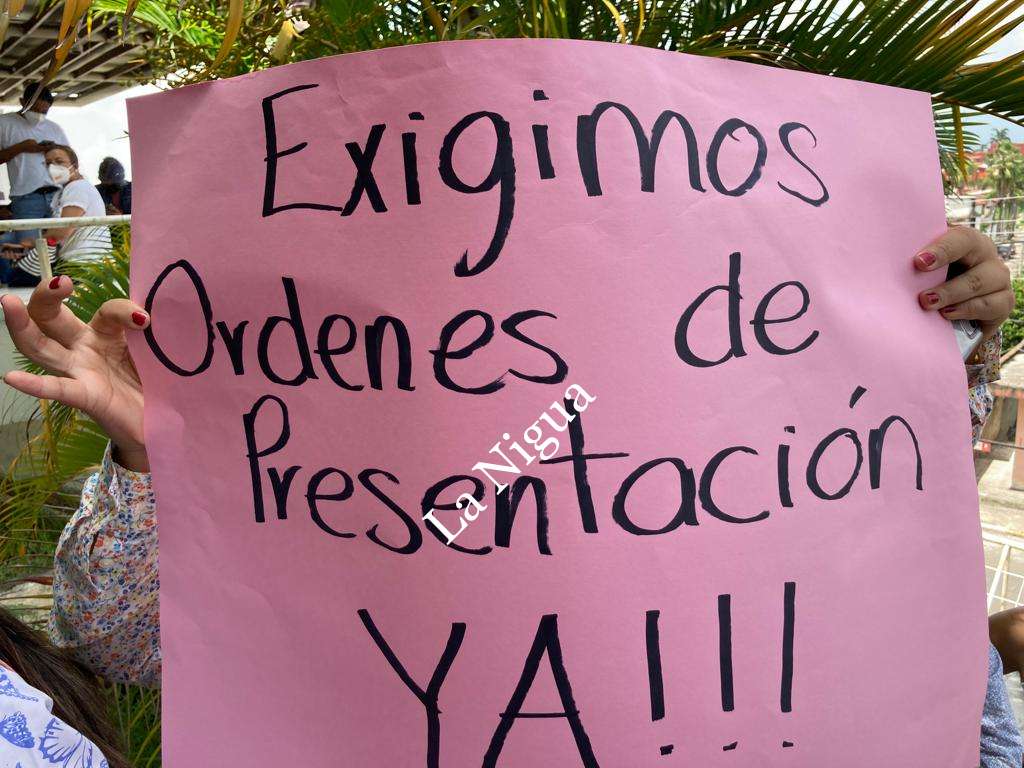 Exigimos
Ordenes de
Presentación
YA!!!
La Nigua